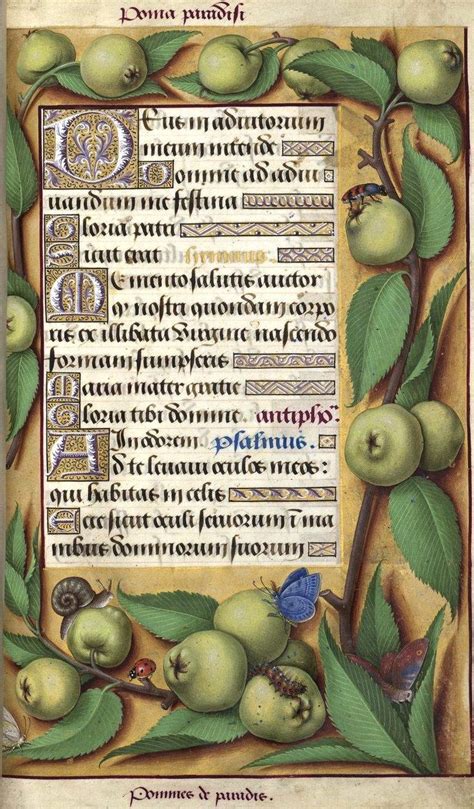 Poma paradisi
Deus in adiutorium
meum intende
Domine ad adiu
uandum me festina
Gloria patri
Sicut erat hymnus
Memento salutis auctor
ꝙ nostri quondam corpo
ris ex illibata Virgine nascendo
formam sumpseris
Maria mater gratie
Gloria tibi domine antipho.
In odorem psalmus.
Ad te leuaui oculos meos:
qui habitas in celis
Ecce sicut oculi seruorum ī ma
nibus dominorum suorum
Pommes de paradis.